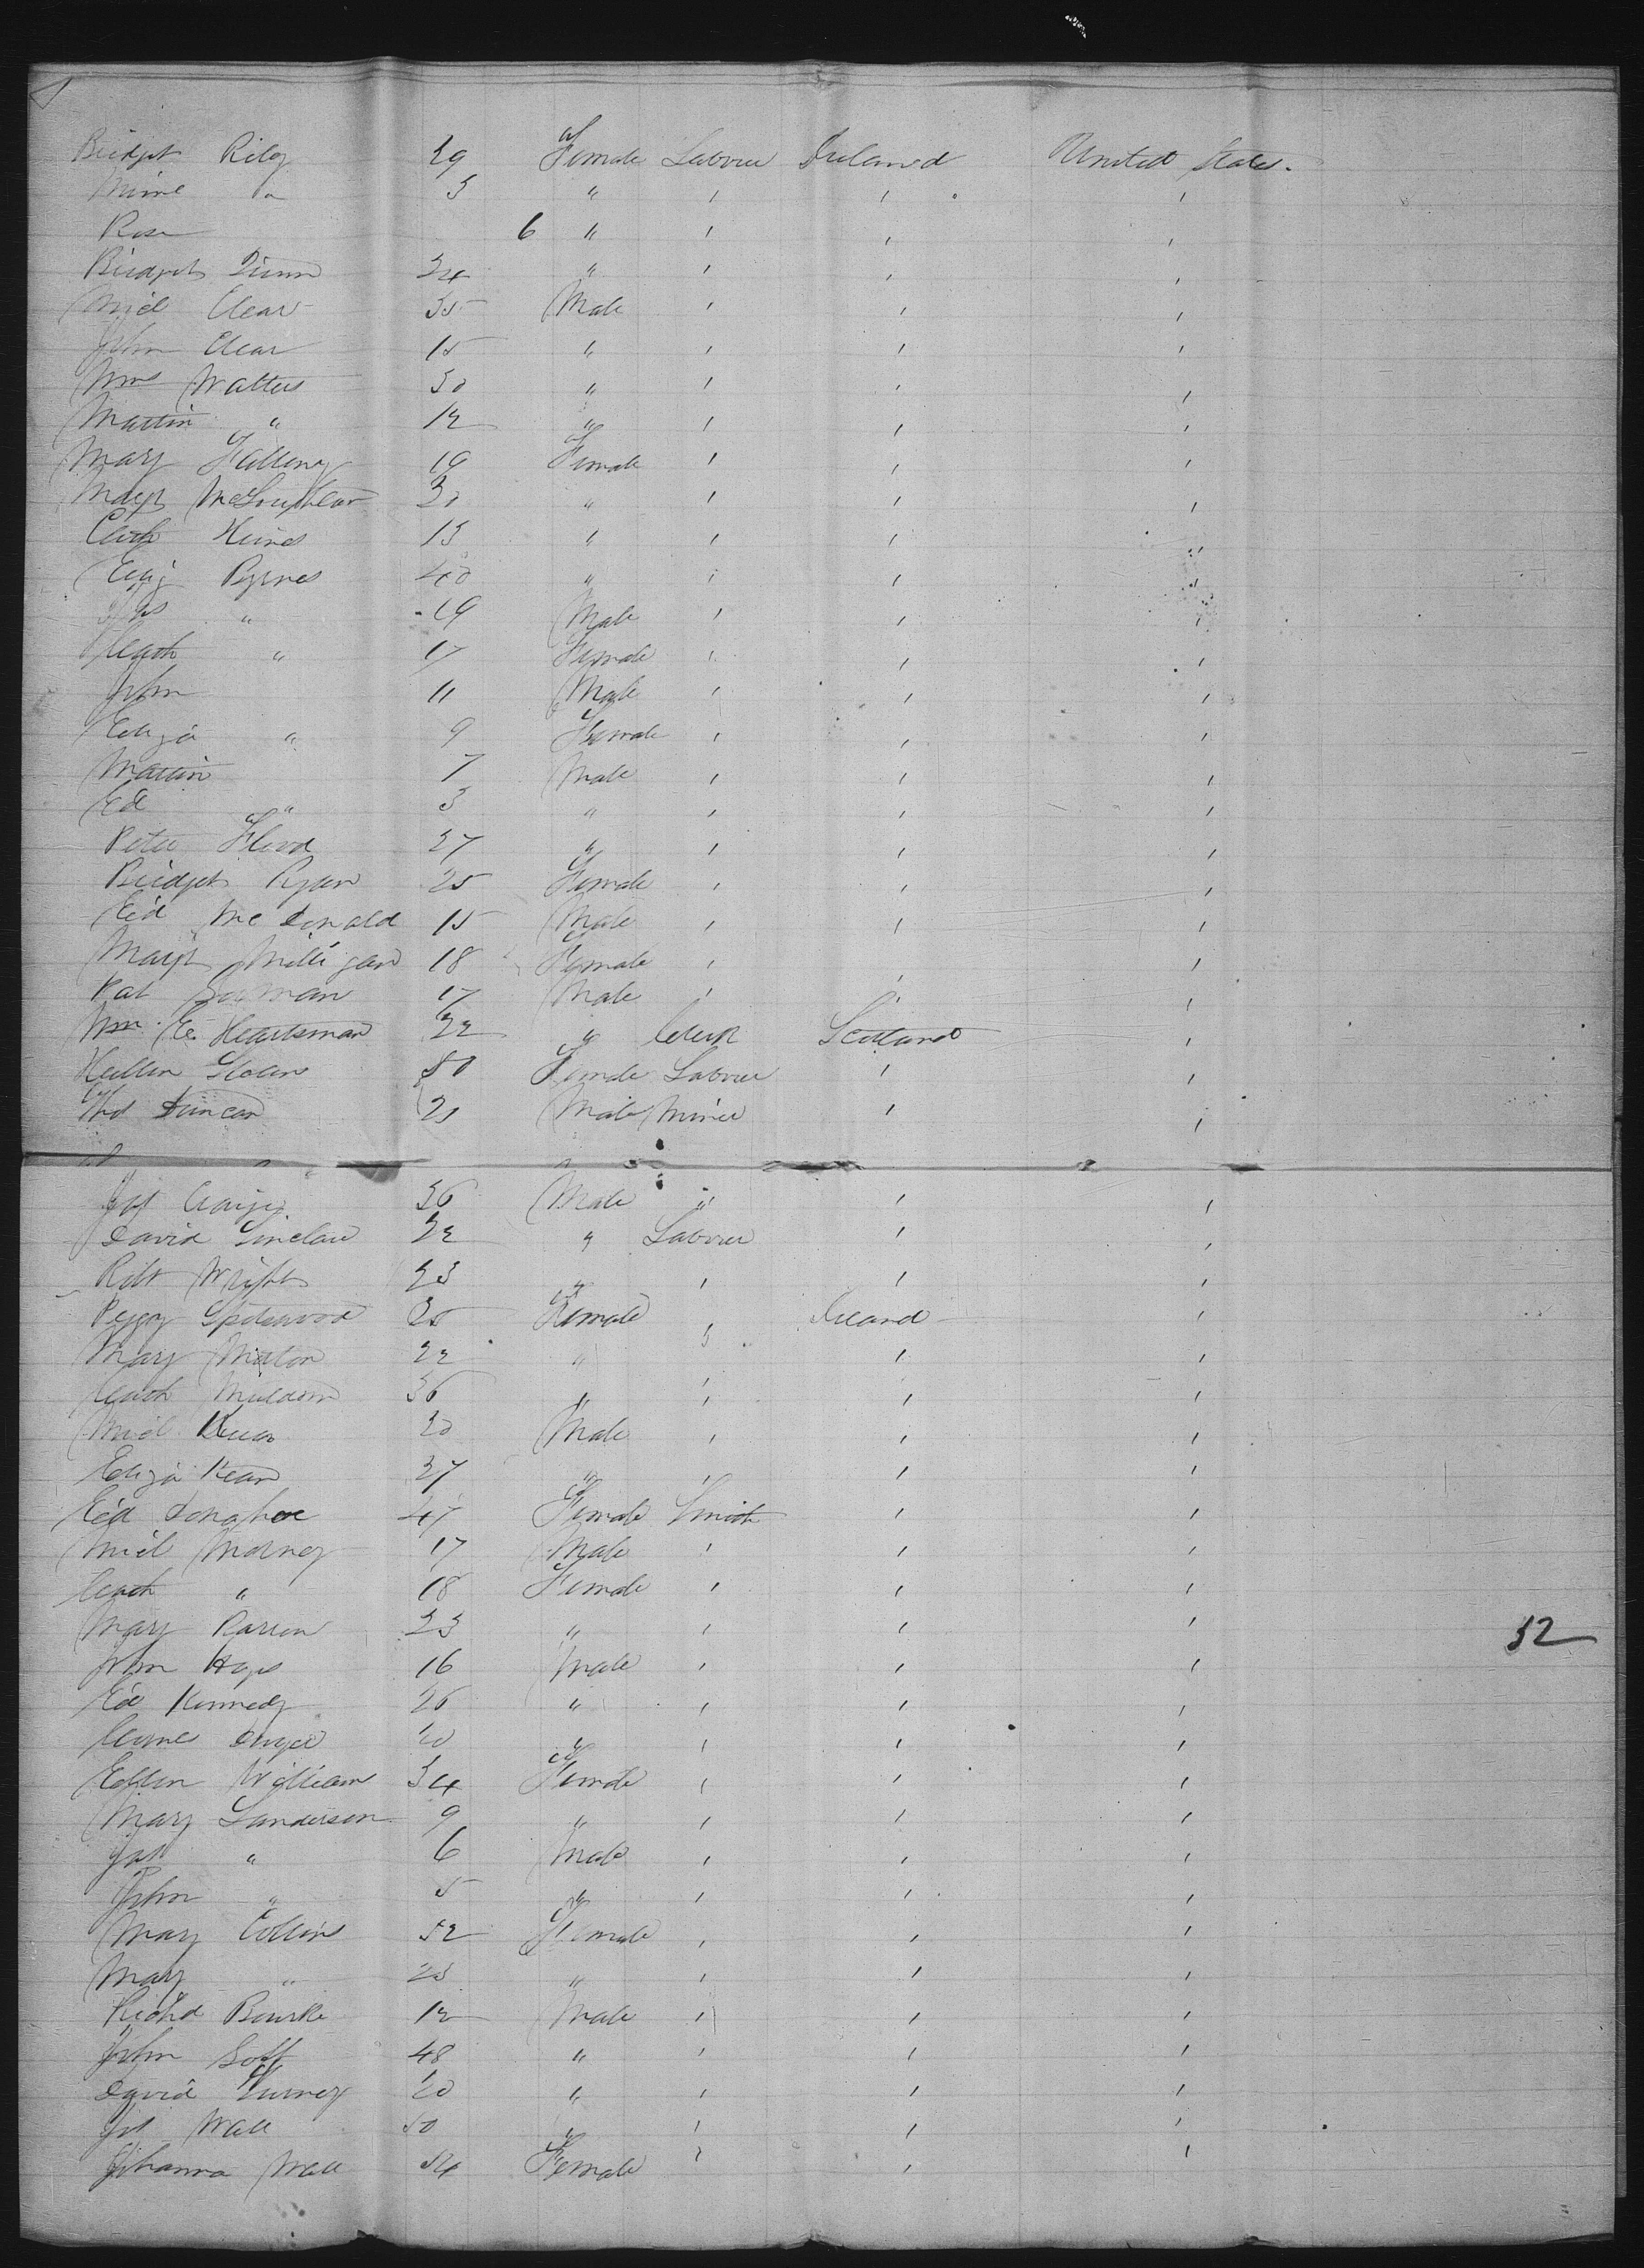 Bridget Riley 29 Female Labour Ireland United States.
" 3 " " " "
Rose 6 " " " "
Bridget Quinn 24 " " " "
Mic'l Clear 35 Male " " "
John Clear 15 " " " "
Wm Walters 30 " " " "
Martin " 12 " " " "
Mary 19 Female " " "
Margt McLoughlan 20 " " " "
Cath Hines 13 " " " "
Eliz Byrnes 40 " " " "
Jas " 19 Male " " "
Cath " 17 Female " " "
John 11 Male " " "
Eliza " 9 Female " " "
Martin 7 Male " " "
Ed " 3 " " " "
Peter Flood 27 " " " "
Bridget Ryan 25 Female " " "
Ed McDonald 15 Male " " "
Margt Milligan 18 Female " " "
Pat Gorman 17 Male " " "
Wm. E. Heartsman 22 " Clerk Scotland "
Hellen Sloan 50 Female Labour " "
Thos Duncan 21 Male Miner " "
Jas Craige 36 Male " " "
David Sinclair 22 " Labour " "
Robt Wright 23 " " " "
Peggy Spotswood 20 Female " Ireland "
Mary Minton 22 " " " "
Cath Muldoon 36 " " " "
Mic'l Kean 20 Male " " "
Eliza Kean 27 " " " "
Ed Donahoe 47 Female Smith " "
Mic'l Morney 17 Male " " "
Cath " 18 Female " " "
Mary Barron 23 " " " "
John Hays 16 Male " " "
Ed Kennedy 26 " " " "
20 " " " "
Ellen William 34 Female " " "
Mary Sanderson 9 " " " "
Jas " 6 Male " " "
John " 5 " " " "
Mary Collins 52 Female " " "
Mary " 23 " " " "
Richd Bourke 12 Male " " "
John Goff 48 " " " "
David Furney 20 " " " "
Jas Wall 50 " " " "
Johanna Wall 54 Female " " "
32